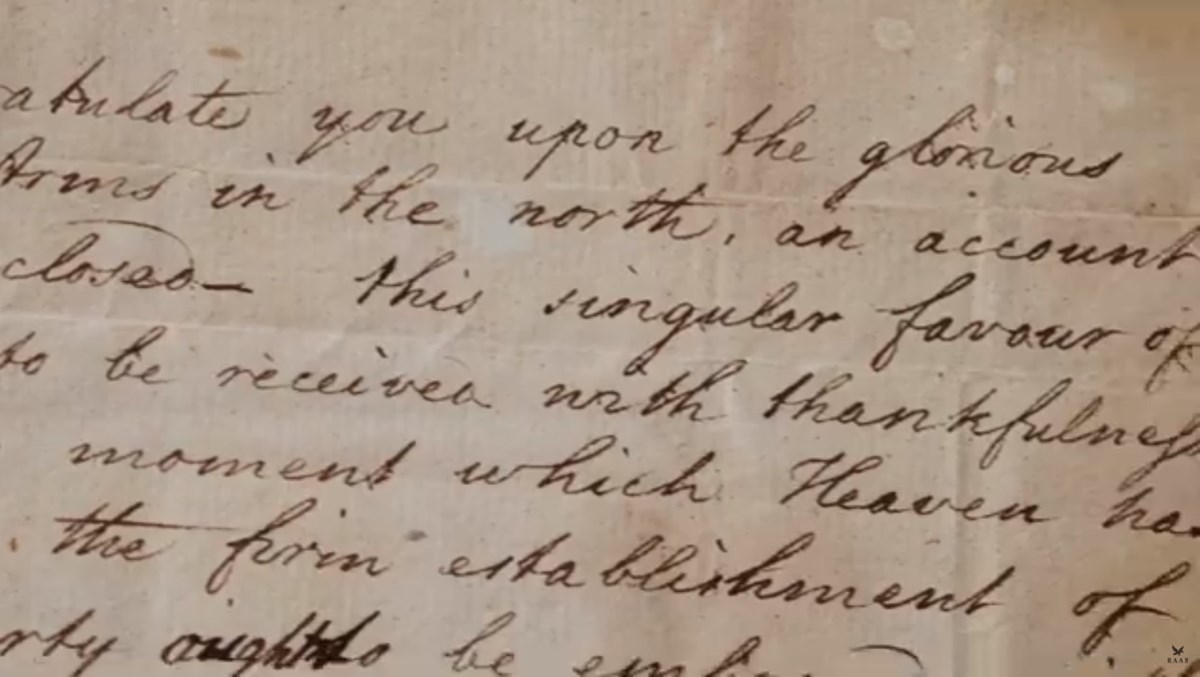 atulate you upon the glorious
Arms in the north, an account
closed— this singular favour of
to be received with thankfulness
moment which Heaven ha
the firm establishment of
rty ought to be emb
RAAB